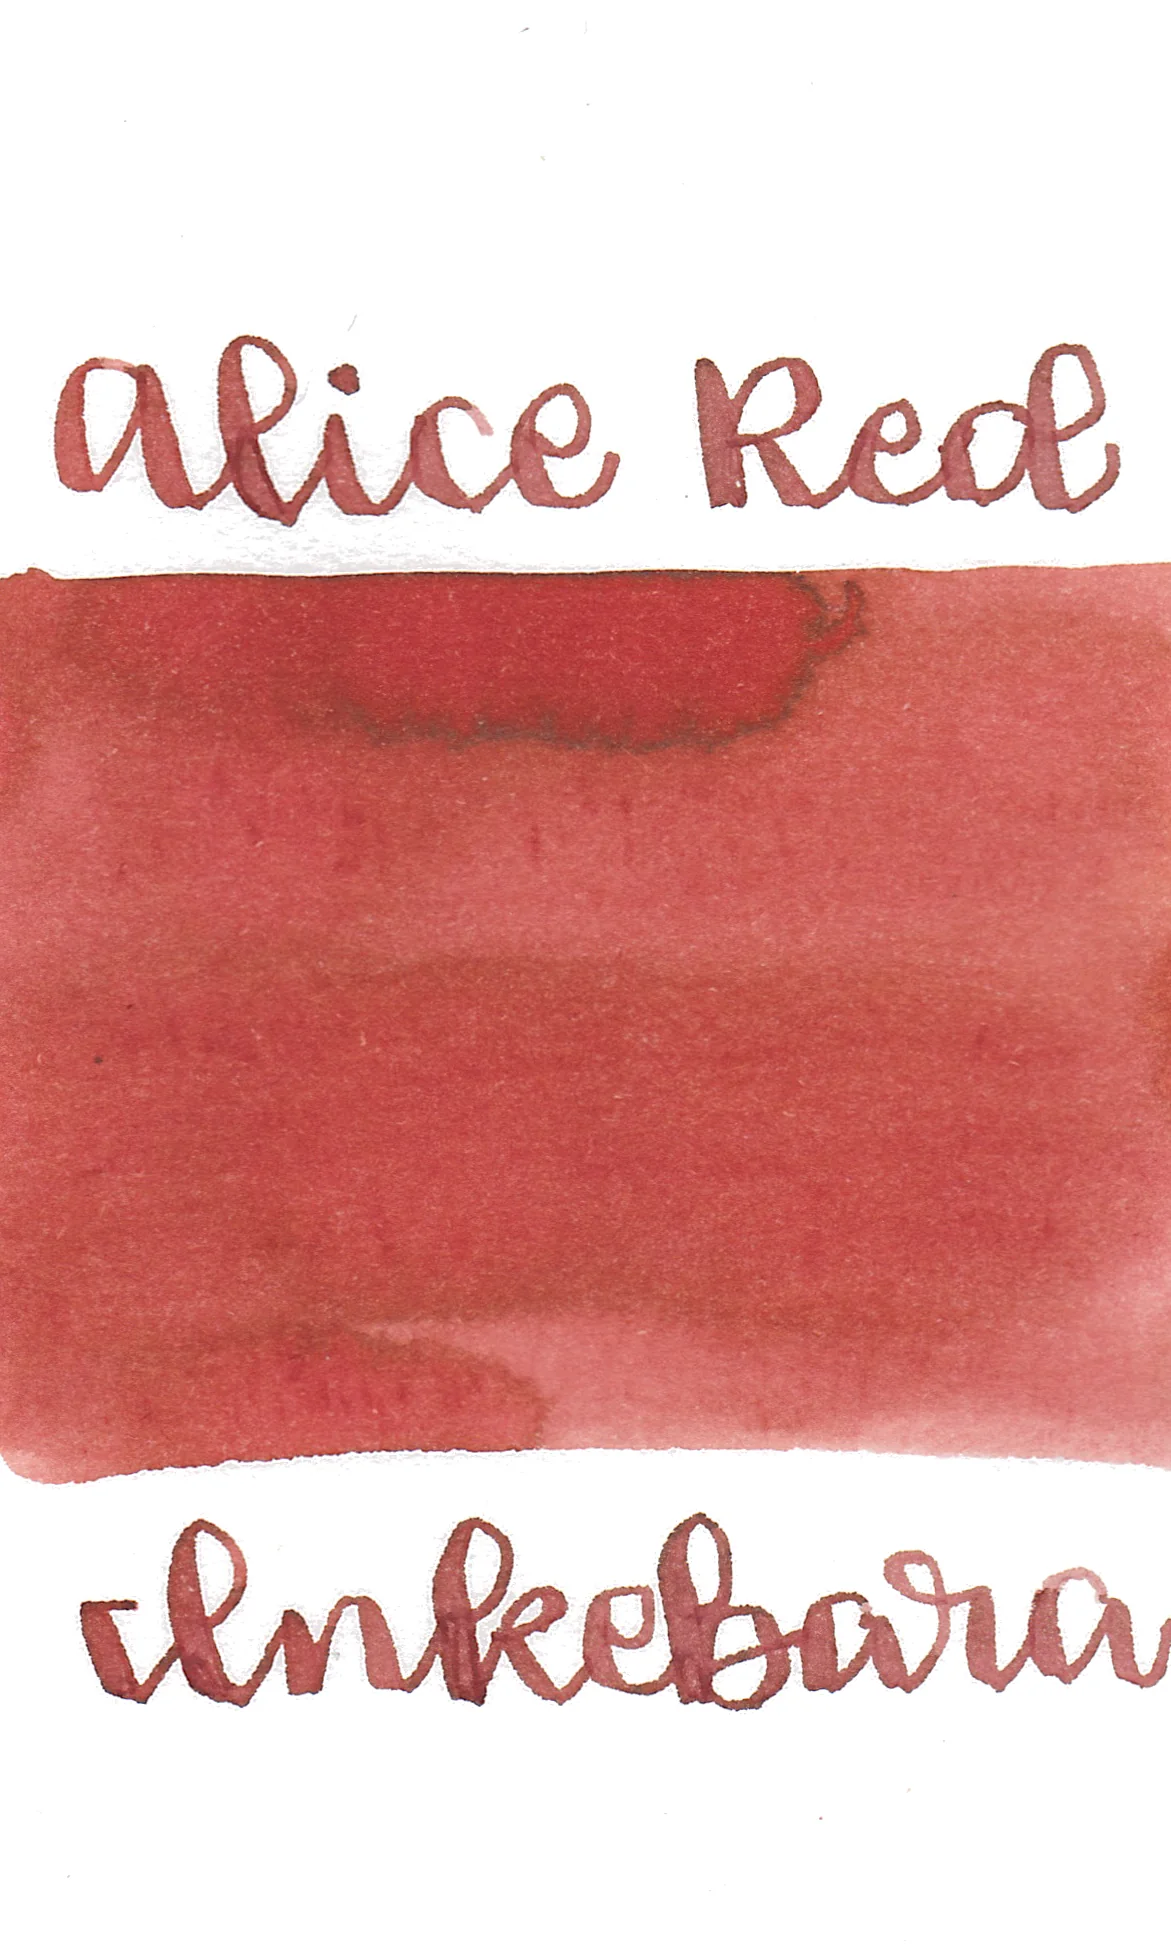 Alice Red
Inkebara